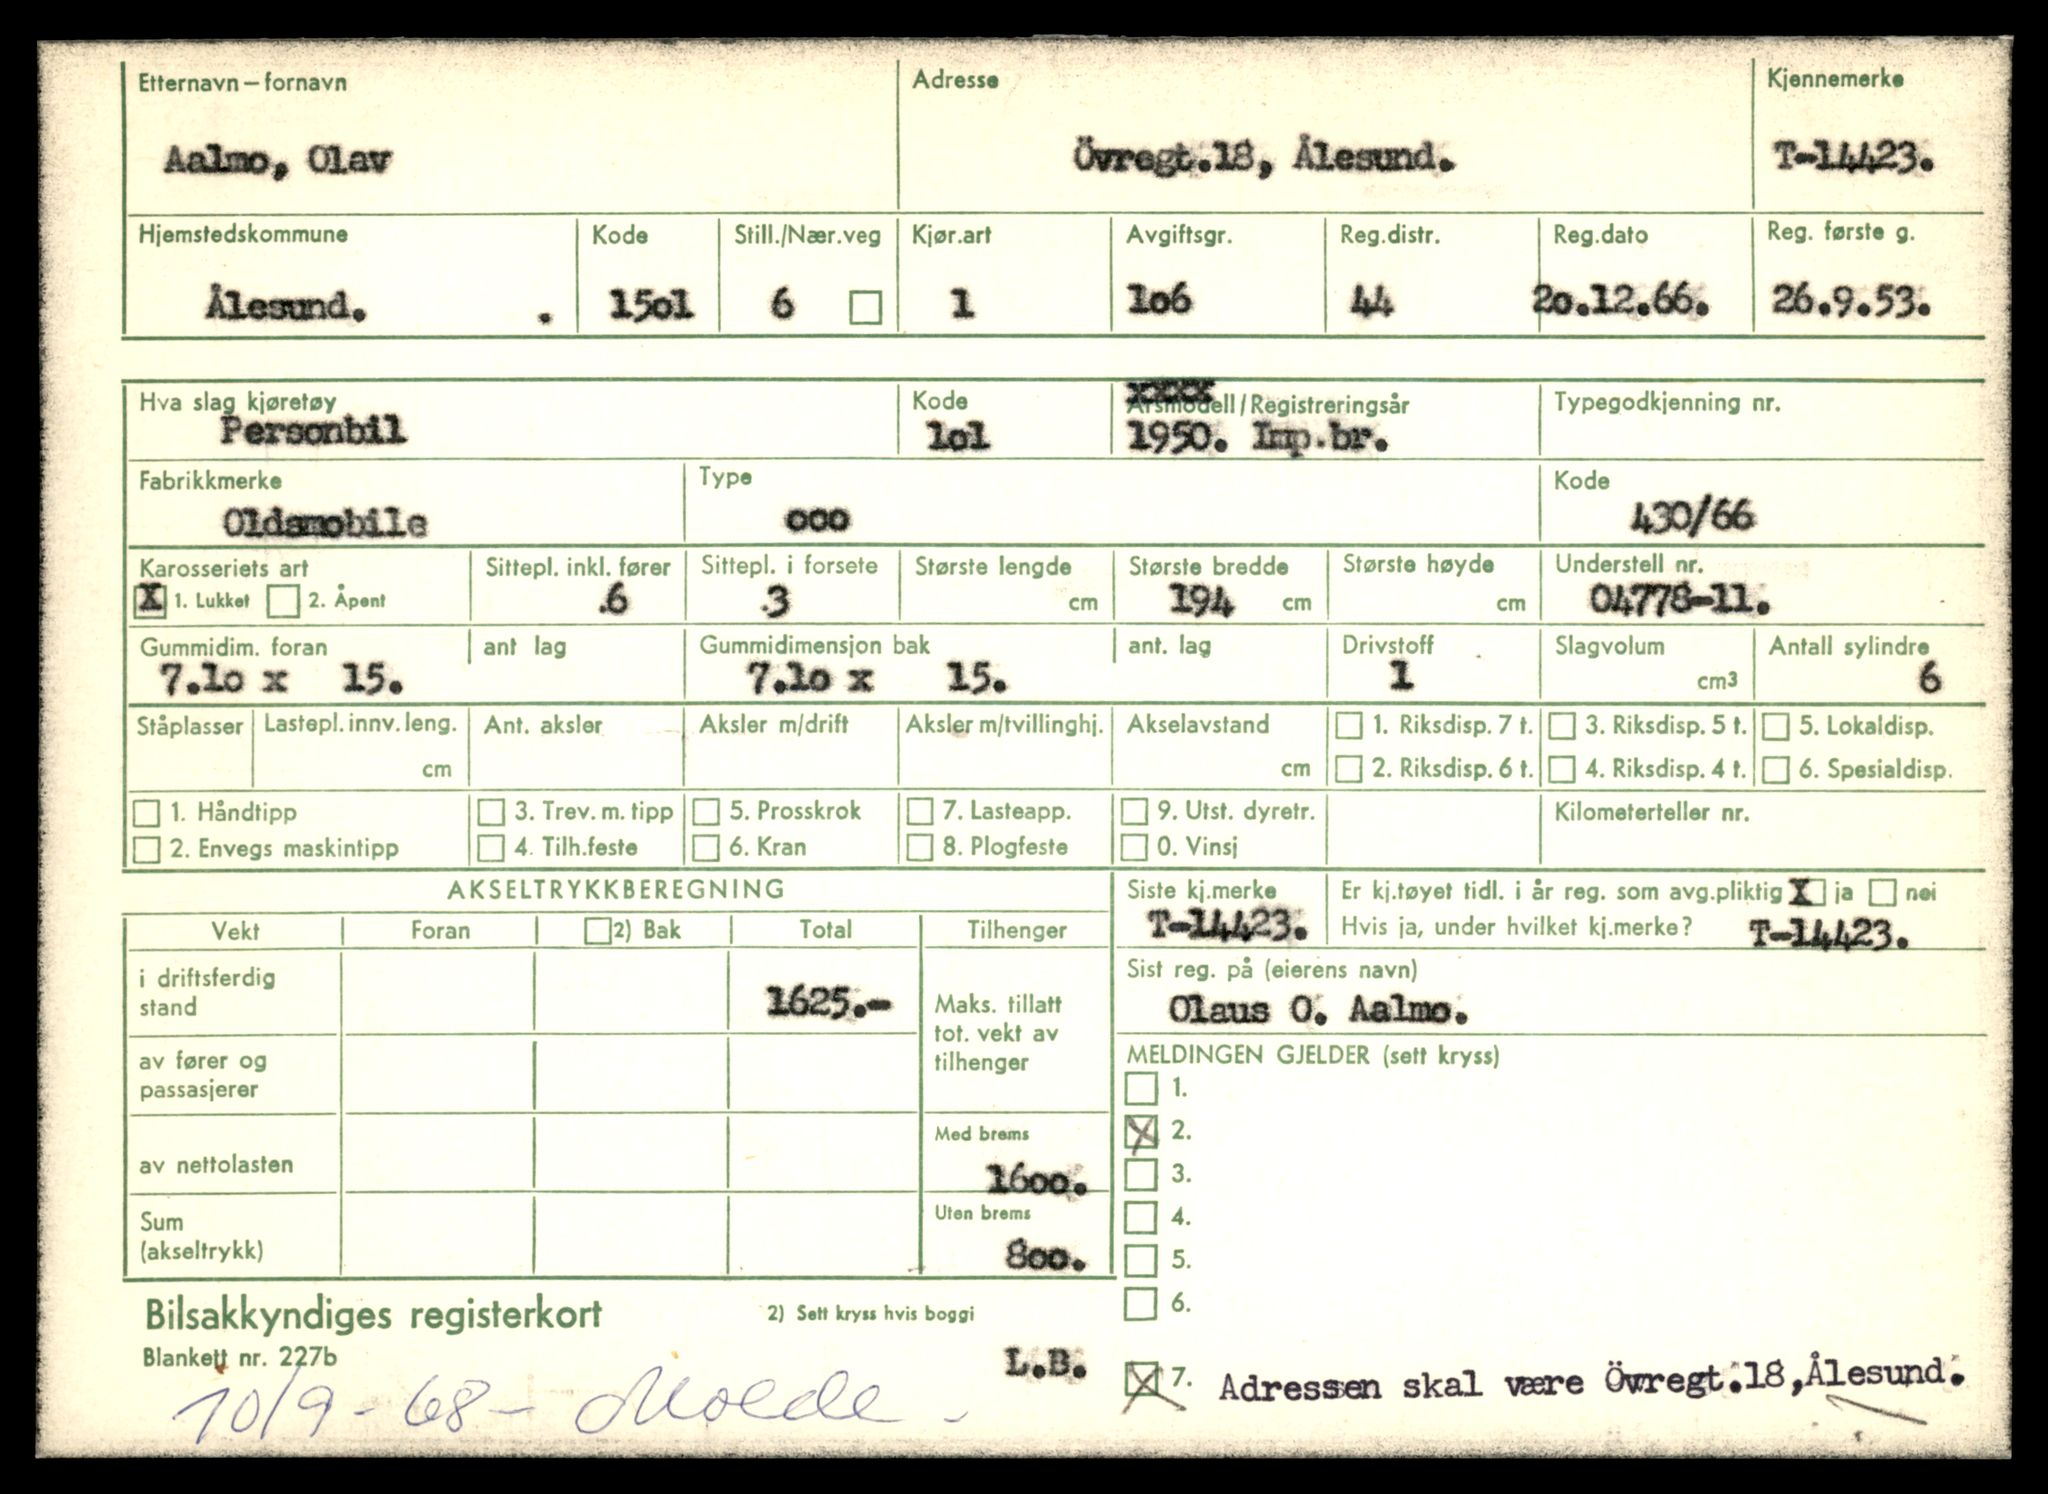 Etternavn – fornavn Adresse Kjennemerke
Aalmo, Olav Övregt.18, Ålesund. T-14423.
Hjemstedskommune Kode Still./Nær.veg Kjør.art Avgiftsgr. Reg.distr. Reg.dato Reg. første g.
Ålesund. . 15o1 6 1 1o6 44 2o.12.66. 26.9.53.
Hva slag kjøretøy Kode Årsmodell/Registreringsår Typegodkjenning nr.
Personbil 1o1 1950. Imp.br.
Fabrikkmerke Type Kode
Oldsmobile ooo 430/66
Karosseriets art Sittepl. inkl. fører Sittepl. i forsete Største lengde Største bredde Største høyde Understell nr.
X 1. Lukket 2. Åpent .6 .3 cm 194 cm cm 04778-11.
Gummidim. foran ant lag Gummidimensjon bak ant. lag Drivstoff Slagvolum Antall sylindre
7.1o x 15. 7.1o x 15. 1 cm3 6
Ståplasser Lastepl. innv. leng. Ant. aksler Aksler m/drift Aksler m/tvillinghj. Akselavstand 1. Riksdisp. 7 t. 3. Riksdisp. 5 t. 5. Lokaldisp.
cm cm 2. Riksdisp. 6 t. 4. Riksdisp. 4 t. 6. Spesialdisp.
1. Håndtipp 3. Trev. m. tipp 5. Prosskrok 7. Lasteapp. 9. Utst. dyretr. Kilometerteller nr.
2. Envegs maskintipp 4. Tilh.feste 6. Kran 8. Plogfeste 0. Vinsj
AKSELTRYKKBEREGNING
Vekt Foran 2) Bak Total Tilhenger
i driftsferdig
stand 1625.-
Maks. tillatt
tot. vekt av
tilhenger
av fører og
passasjerer
Med brems
av nettolasten 1600.
Sum Uten brems
(akseltrykk) 8oo.
Siste kj.merke Er kj.tøyet tidl. i år reg. som avg.pliktig X ja nei
T-14423. Hvis ja, under hvilket kj.merke? T-14423.
Sist reg. på (eierens navn)
Olaus O. Aalmo.
MELDINGEN GJELDER (sett kryss)
1.
X 2.
3.
4.
5.
6.
X 7. Adressen skal være Övregt.18,Ålesund.
Bilsakkyndiges registerkort 2) Sett kryss hvis boggi
Blankett nr. 227b L.B.
10/9-68- Molde -